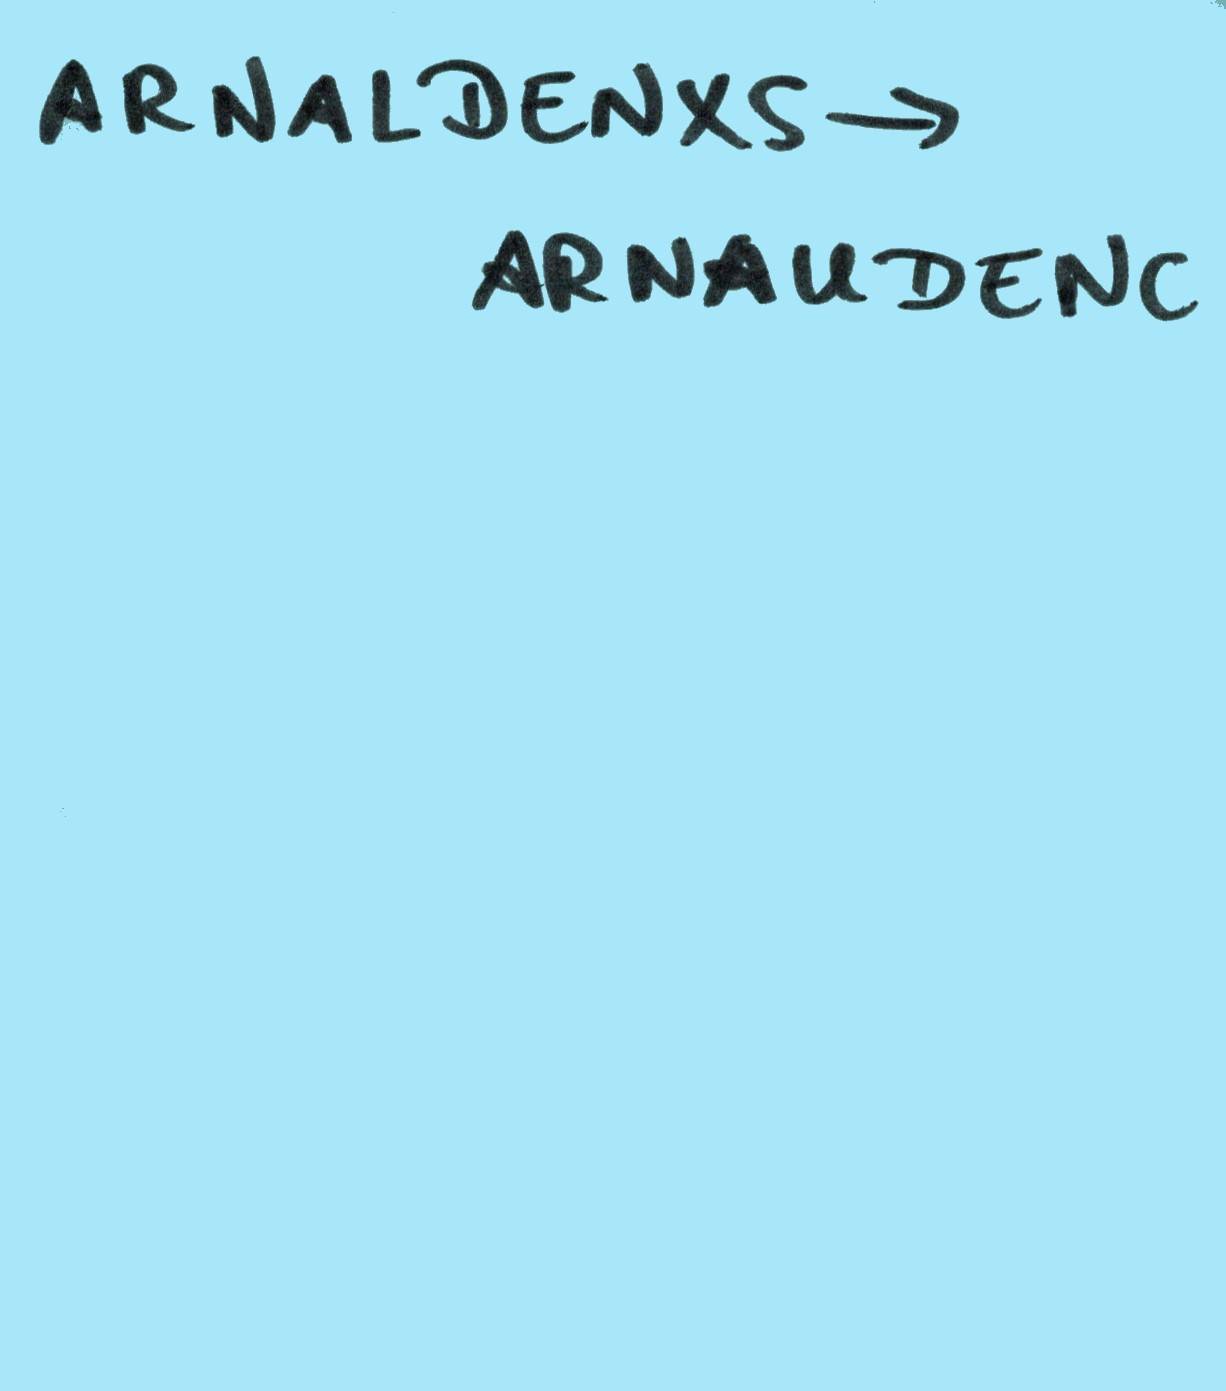 ARNALDENXS →
ARNAUDENC